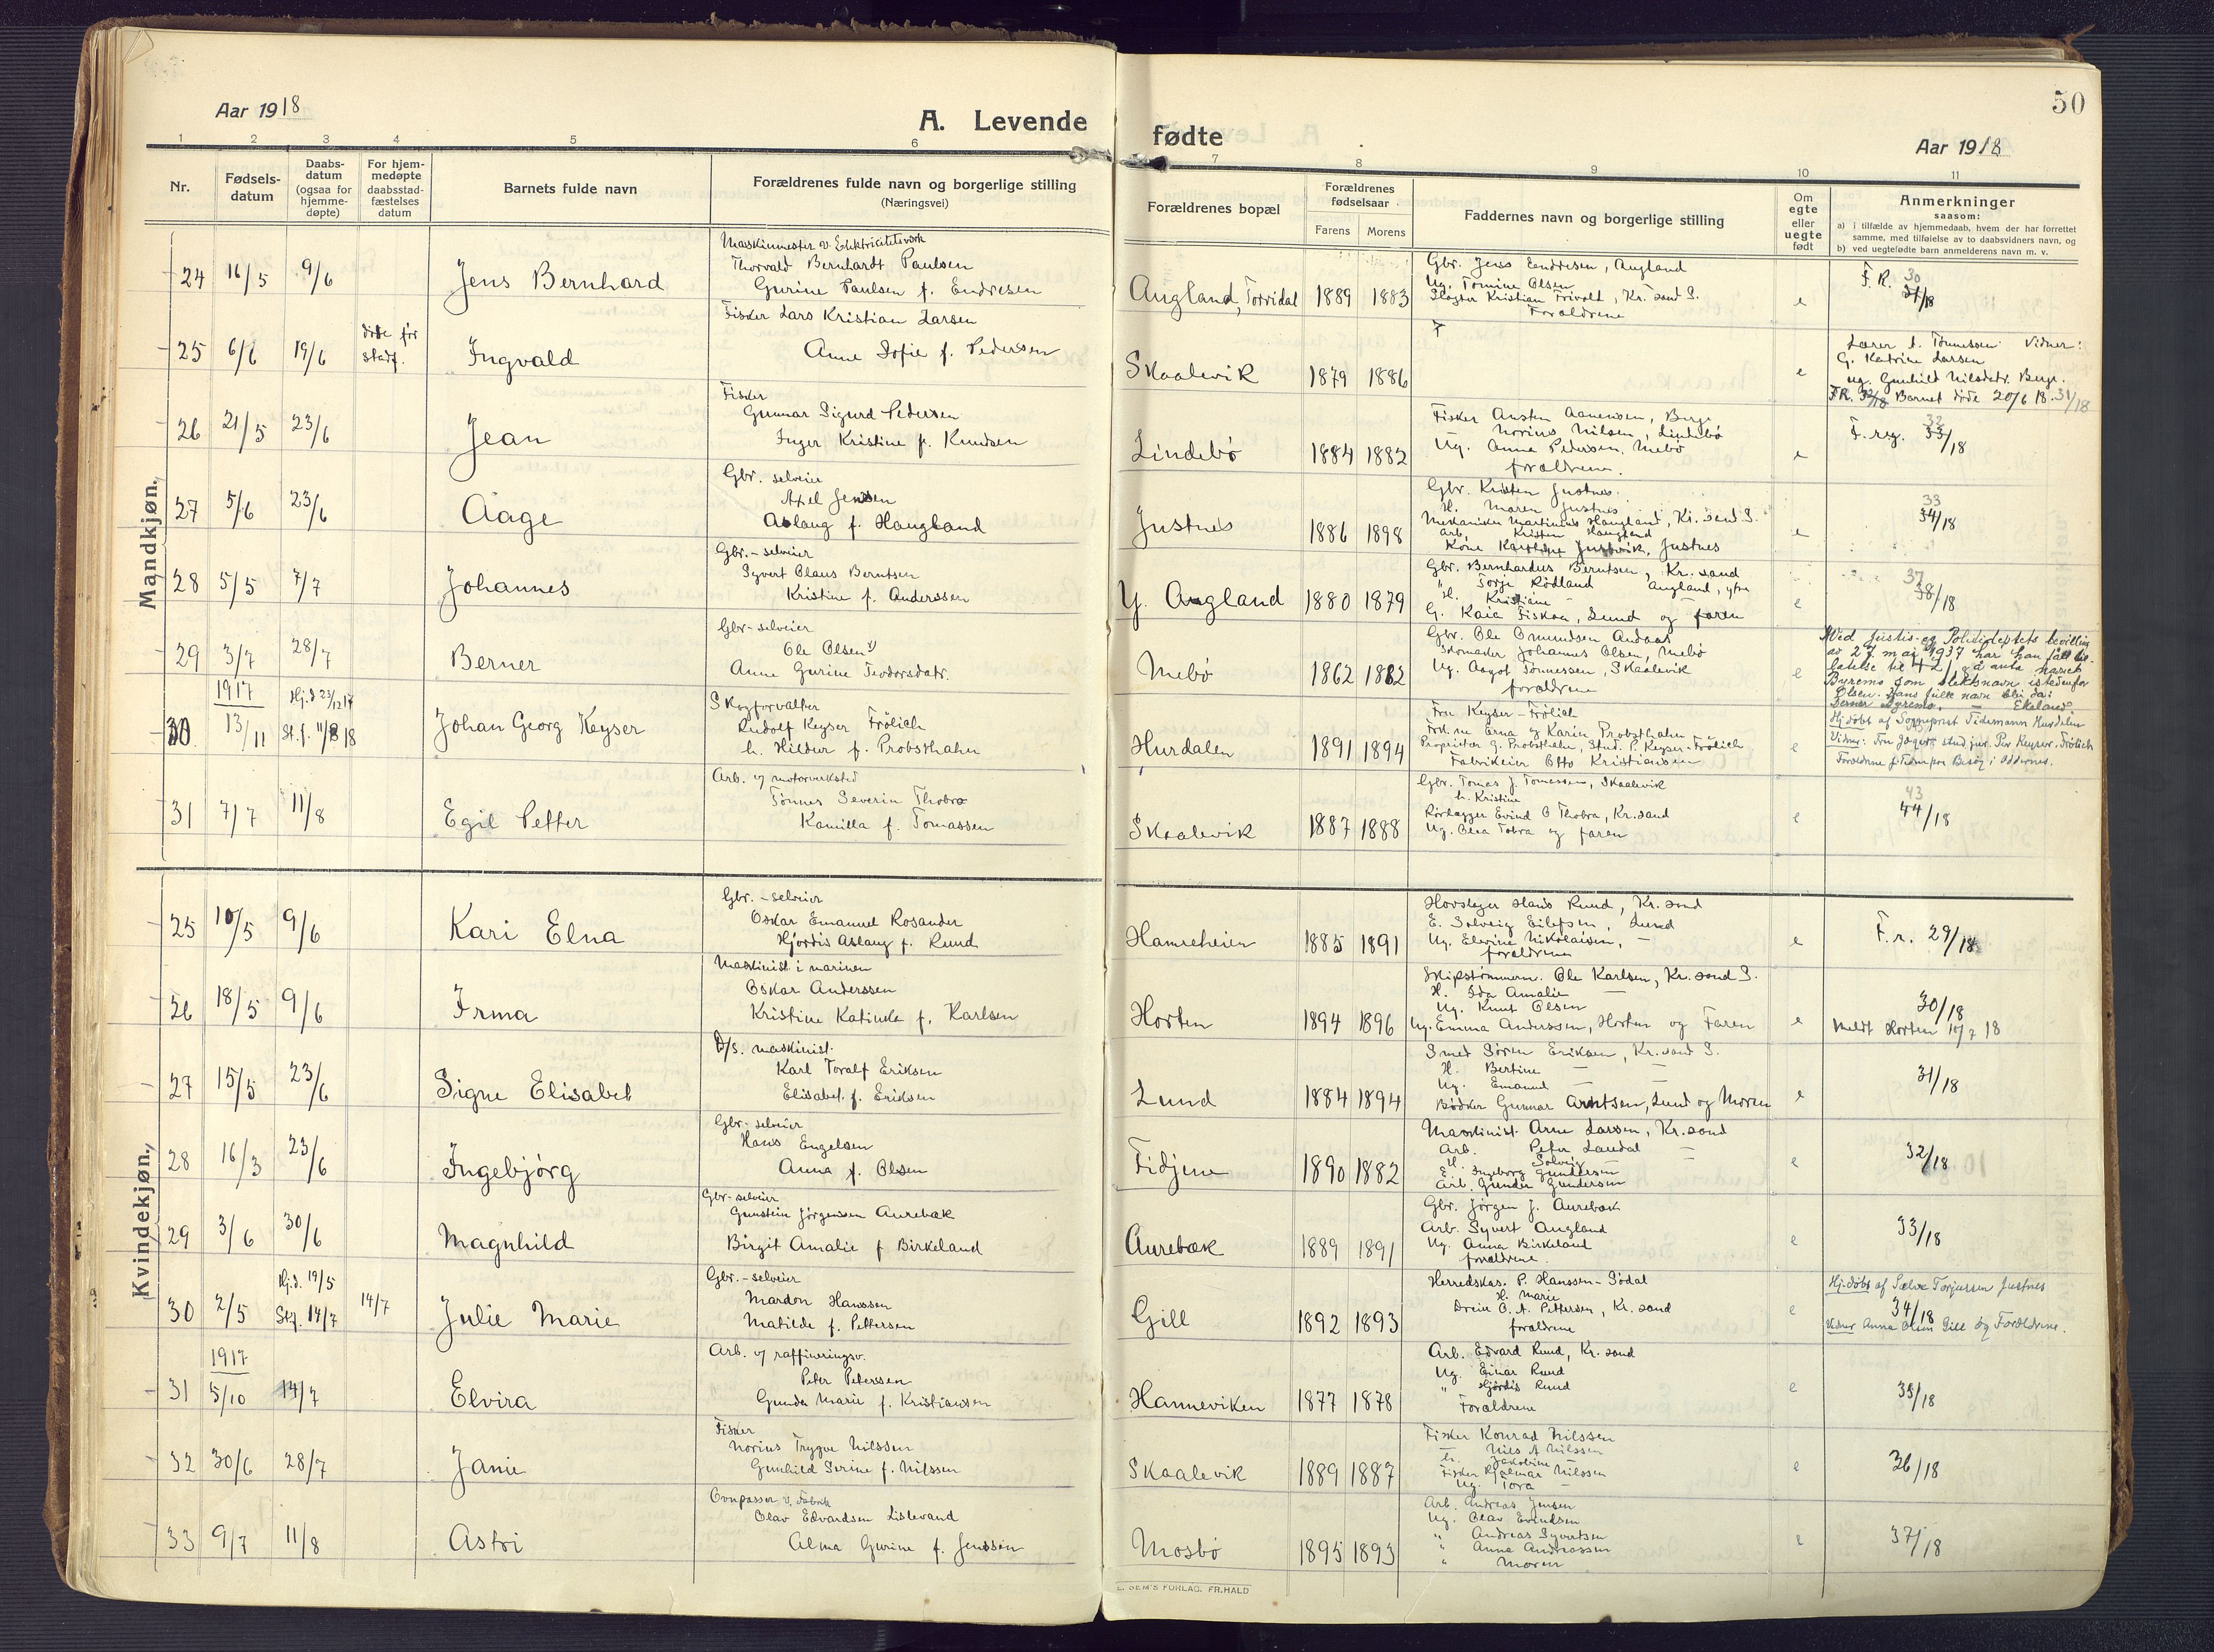 50
Aar 1918
A. Levende
fødte
Aar 1918
1 2 3 4 5 6 7 8 9 10 11
Nr.
Fødsels-
datum
Daabs-
datum
(ogsaa for
hjemme-
døpte)
For hjem-
medøpte
daabsstad-
fæstelses
datum
Barnets fulde navn
Forældrenes fulde navn og borgerlige stilling
(Næringsvei)
Forældrenes bopæl
Forældrenes
fødselsaar
Farens Morens
Faddernes navn og borgerlige stilling
Om
egte
eller
uegte
født
Anmerkninger
saasom:
a) i tilfælde av hjemmedaab, hvem der har forrettet
samme, med tilføielse av to daabsvidners navn, og
b) ved uegtefødte barn anmelderens navn m. v.
Mandkjøn.
24 16/5 9/6 Jens Bernhard
Maskinmester v. Elektricitetsverk
Thorvald Bernhardt Paulsen
Gurine Paulsen f. Endresen
Augland, Torridal 1889 1883
Gbr. Jens Endresen, Augland
Ug. Tomine Olsen
Slagter Kristian Frivold, Kr. sand S.
Forældrene
e
F. R. 30
31/18
25 6/6 19/6 døde før
stadf.
Ingvald
Fisker Lars Kristian Larsen
Anne Sofie f. Pedersen
Skaalevik 1879 1886
e
Lærer Tønnessen Vidner:
G. Katrine Larsen
ug. Gunhild Nilsdatr. Berge.
F.R. 32/18 Barnet døde 20/6 18. 31/18
26 21/5 23/6 Jean
Fisker
Gunnar Sigurd Pedersen
Inger Kristine f. Knudsen
Lindebø 1884 1882
Fisker Austen Aanensen, Berge
Norius Nilsen, Lindebø
Ug. Anna Pedersen, Mebø
forældrene.
e
F. reg. 32
33/18
27 5/6 23/6 Aage
Gbr. selveier
Axel Jensen
Aslaug f. Haugland
Justnes 1886 1898
Gbr. Kristen Justnes.
H. Maren Justnes
Mekaniker Martinius Haugland, Kr. sand S.
Arb. Kristen Haugland
Kone Karoline Justvik, Justnes
e
33
34/18
28 5/5 7/7 Johannes
Gbr.-selveier
Syvert Olaus Berntsen
Kristine f. Anderssen
Y. Augland 1880 1879
Gbr. Bernhardus Berntsen, Kr. sand
" Torje Rødland Augland, ytre
H. Kristiane –
G. Kaia Fiskaa, Lund og faren
e
37
38/18
29 3/7 28/7 Berner
Gbr-selveier
Ole Olsen
Anne Gurine Teodorsdatr.
Mebø 1862 1882
Gbr. Ole Omundsen Andaas
Skomaker Johannes Olsen, Mebø
Ug. Aagot Tønnessen, Skaalevik
forældrene
e
Ved Justis- og Politideptets bevilling
av 27. mai 1937 har han fått til-
latelse til å anta navnet
Byremo som slektsnavn istedenfor
Olsen. Hans fulle navn blir da:
Berner Byremo. – Ekeland.
1917
30 13/11 Hj.d. 23/12 17
St.f. 11/8 18
Johan Georg Keyser
Skogforvalter
Rudolf Keyser Frölich
h. Hildur f. Probsthahn
Hurdalen 1891 1894
Fru Keyser-Frölich
Frk.ne Erna og Karin Probsthahn
Proprietær G. Probsthahn, Stud. P. Keyser-Frölich
Fabrikeier Otto Kristiansen
e
Hj.døbt af Sogneprest Tidemann Hurdalen
Vidner: Fru Jæger, stud jur. Per Keyser-Frölich
Forældrene p. Besøg i Oddernes.
31 7/7 11/8 Egil Petter
Arb. v/ motorverksted
Tønnes Severin Thobro
Kamilla f. Tomassen
Skaalevik 1887 1888
Gbr. Tomas J. Tomassen, Skaalevik
h. Kristine
Rørlægger Evind O Thobra, Kr. sand
Ug. Olea Tobra og faren
e
43
44/18
Kvindekjøn.
25 10/5 9/6 Kari Elna
Gbr.-selveier
Oskar Emanuel Rosander
Hjördis Aslaug f. Ruud
Hamreheien 1885 1891
Hovslager Hans Ruud, Kr. sand
E. Solveig Eilefsen, Lund
Ug. Elevine Nikolaisen, –
forældrene
e
F. r. 29/18
26 18/5 9/6 Irma
Maskinist i marinen
Oskar Anderssen
Kristine Katinka f. Karlsen
Horten 1894 1896
Skipstømmerm. Ole Karlsen, Kr. sand S.
H. Ida Amalie –
Ug. Knut Olsen
Ug. Emma Anderssen, Horten og Faren
e
30/18
Meldt Horten 10/7 18
27 15/5 23/6 Signe Elisabet
D/s. maskinist.
Karl Toralf Eriksen
Elisabet f. Eriksen
Lund 1884 1894
Smed Søren Eriksen, Kr. sand S.
H. Bertine – –
Ug. Emanuel – –
Bødker Gunnar Arntsen, Lund og Moren
e
31/18
28 16/3 23/6 Ingebjörg
Gbr- selveier
Hans Engelsen
Anna f. Olsen
Fidjene 1890 1882
Maskinist Arne Larsen, Kr. sand
Arb. Peter Laudal –
H. Solveig –
E. Ingeborg Gundersen
Arb. Gunder Gundersen
e
32/18
29 3/6 30/6 Magnhild
Gbr-selveier
Gunstein Jørgensen Aurebæk
Birgit Amalie f Birkeland
Aurebæk 1889 1891
Gbr. Jørgen J. Aurebæk
Arb. Syvert Augland
Ug. Anna Birkeland
forældrene.
e
33/18
30 2/5 Hj.d. 19/5
Stf. 14/7
14/7
Julie Marie
Gbr.-selveier
Mardon Hanssen
Matilde f. Pettersen
Gill 1892 1893
Herredskas. P. Hanssen-Sødal
H. Marie
Dreier O. A. Pettersen, Kr. sand
forældrene
e
Hj.døbt af Salve Torjussen Justnes
34/18
Vidner Anna Olsen Gill og Forældrene.
1917
31 5/10 14/7 Elvira
Arb. v/ raffineringsv.
Peter Peterssen
Gunda Marie f. Kristiansen
Hanneviken 1877 1878
Arb. Edvard Ruud, Kr. sand
Ug. Einar Ruud
" Hjördis Ruud
Forældrene
e
35/18
32 30/6 28/7 Janie
Fisker
Norius Trygve Nilssen
Gunhild Serine f. Nilssen
Skaalevik 1889 1887
Fisker Konrad Nilssen
– Nils A Nilssen
h. Jakobine –
Fisker Hjalmar Nilssen
Ug. Tora –
e
36/18
33 9/7 11/8 Astri
Ovnpasser v. Fabrik
Olav Edvardsen Listevand
Alma Gurine f. Jenssen
Mosbø 1895 1893
Arb. Andreas Jensen
Ug. Olav Evindsen
" Andreas Syvertsen
" Anna Andreassen
" Moren
e
37/18
E. SEM'S FORLAG. FR.HALD